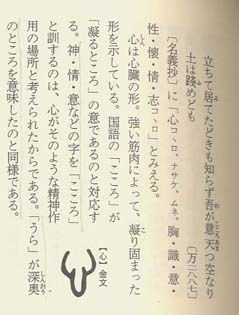 立ちて居てたどきも知らず吾が意天つ空なり
土は踐めども 〔万二八八七〕
〔名義抄〕に「心コヽロ、ナサケ、ムネ。胸・識・意・
性・懐・情・志コヽロ」とみえる。
心は心臓の形。強い筋肉によって、凝り固まった
形を示している。国語の「こころ」が
「凝るところ」の意であるのと対応す
る。神・情・意などの字を「こころ」
と訓するのは、心がそのような精神作
用の場所と考えられたからである。「うら」が深奥
のところを意味したのと同様である。
【心】金文